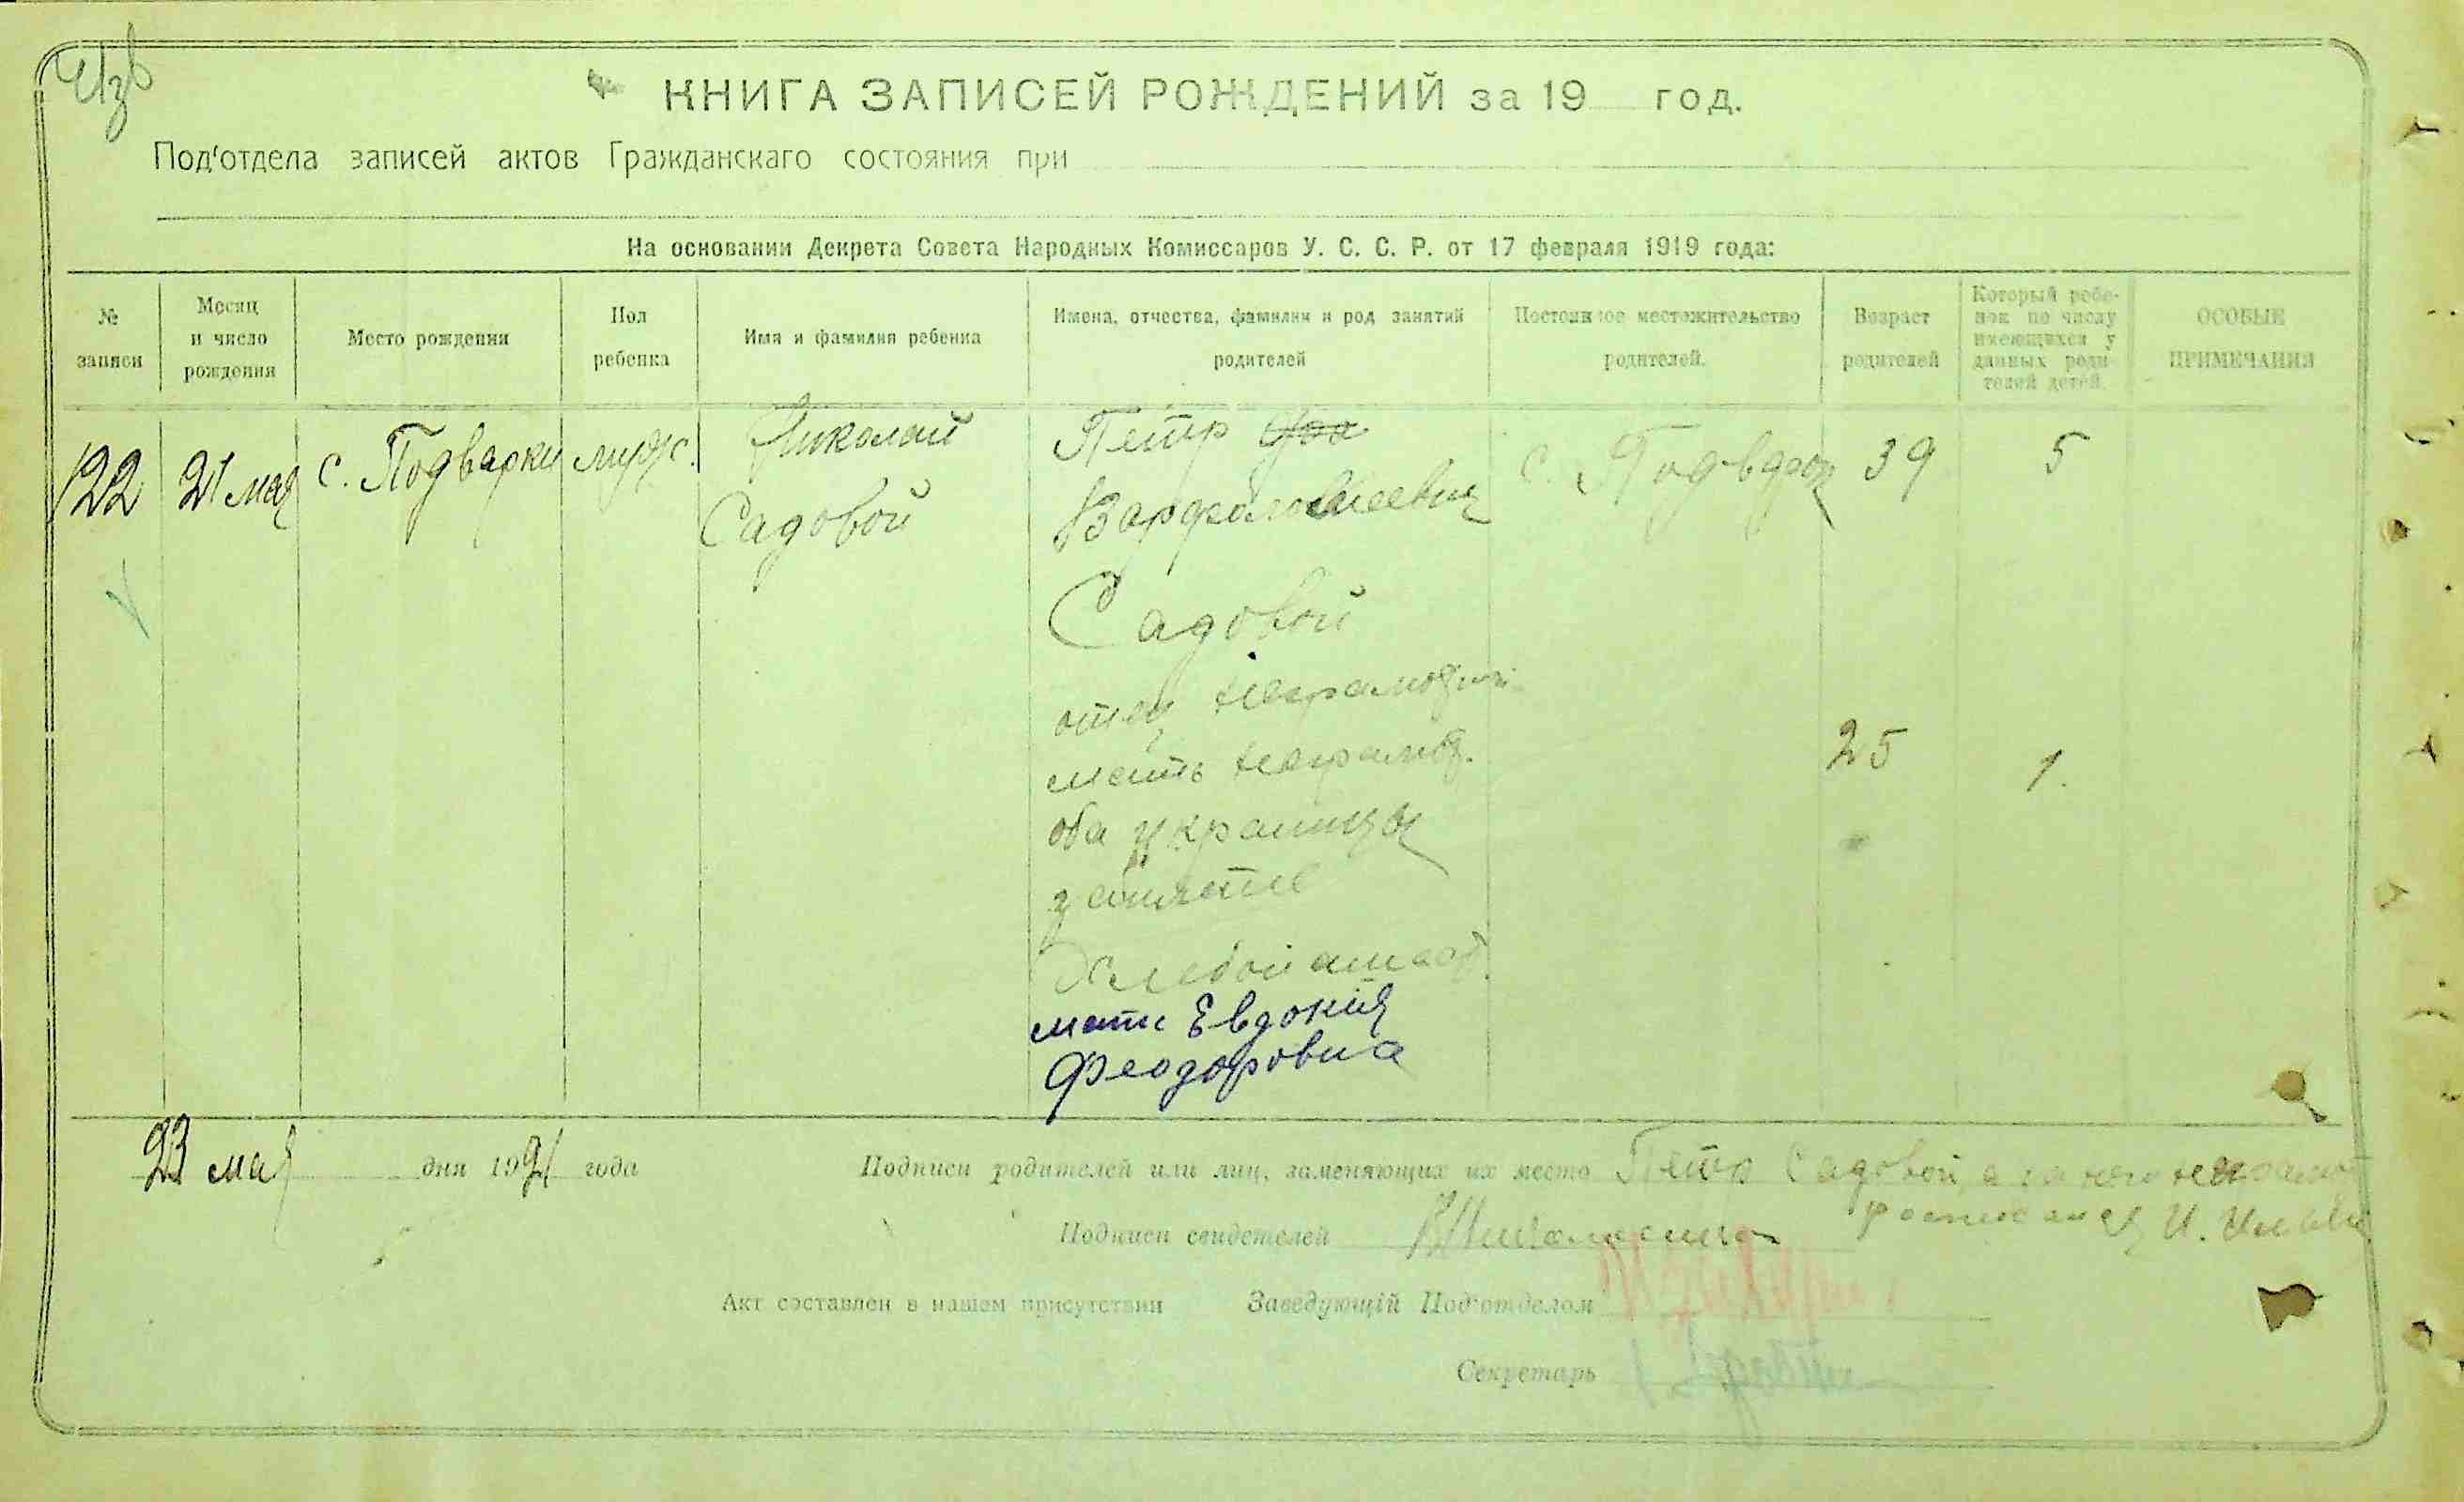 Изв
КНИГА ЗАПИСЕЙ РОЖДЕНИЙ за 19 год.
Под'отдела записей актов Гражданскаго состояния при
На основании Декрета Совета Народных Комиссаров У. С. С. Р. от 17 февраля 1919 года:
№ записи
Месяц и число рождения
Место рождения
Пол ребенка
Имя и фамилия ребенка
Имена, отчества, фамилии и род занятий родителей
Постоянное местожительство родителей.
Возраст родителей
Который ребенок по числу имеющихся у данных родителей детей.
ОСОБЫЕ ПРИМЕЧАНИЯ
122
21 мая
с. Подварки
муж.
Николай
Садовой
Петр
Варфоломеевич
Садовой
отец неграмотный
мать неграмот.
оба украинцы
занятие
Хлебопашест.
мать Евдокия
Феодоровна
с. Подварки
39
5
25
1.
23 мая дня 1921 года
Подписи родителей или лиц, заменяющих их место Петр Садовой, а за него неграмот
росписался И.
Подписи свидетелей
Акт составлен в нашем присутствии Заведующій Под'отделом
Секретарь